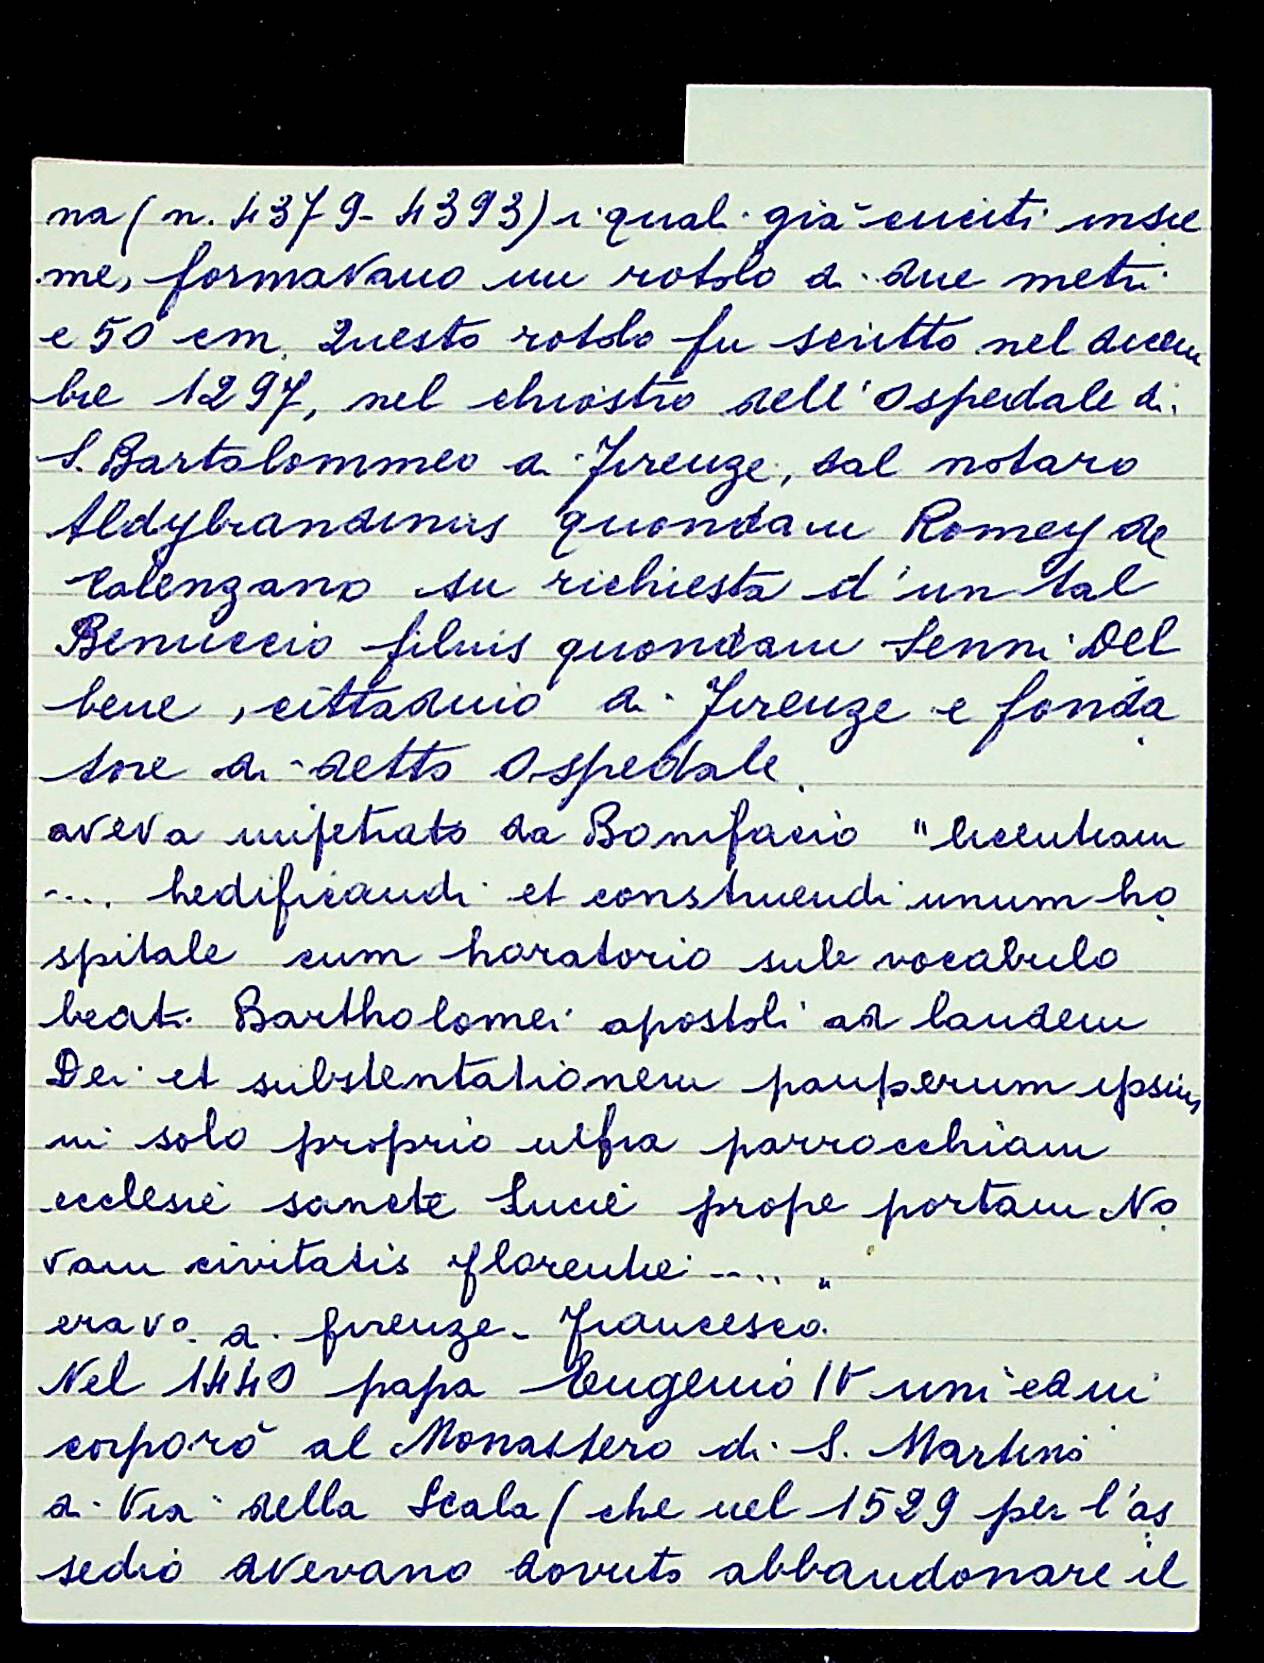 na (n. 4379-4393) i quali già cuciti insie
me, formavano un rotolo di due metri
e 50 cm. Questo rotolo fu scritto nel dicem
bre 1297, nel chiostro dell'Ospedale di
S. Bartolommeo a Firenze, dal notaro
Aldybrandinus quondam Romey de
Calenzano su richiesta d'un tal
Benuccio filius quondam Senni Del
bene, cittadino di Firenze e fonda
tore di detto Ospedale.
aveva impetrato da Bonifacio "licentiam
.... hedificandi et construendi unum ho
spitale cum horatorio sub vocabulo
beati Bartholomei apostoli ad laudem
Dei et substentationem pauperum ipsius
in solo proprio infra parrocchiam
ecclesie sancte Lucie prope portam No
vam civitatis florentie ....."
era vo. di firenze - Francesco.
Nel 1440 papa Eugenio IV unì ed in
corporò al Monastero di S. Martino
di Via della Scala (che nel 1529 per l'as
sedio avevano dovuto abbandonare il